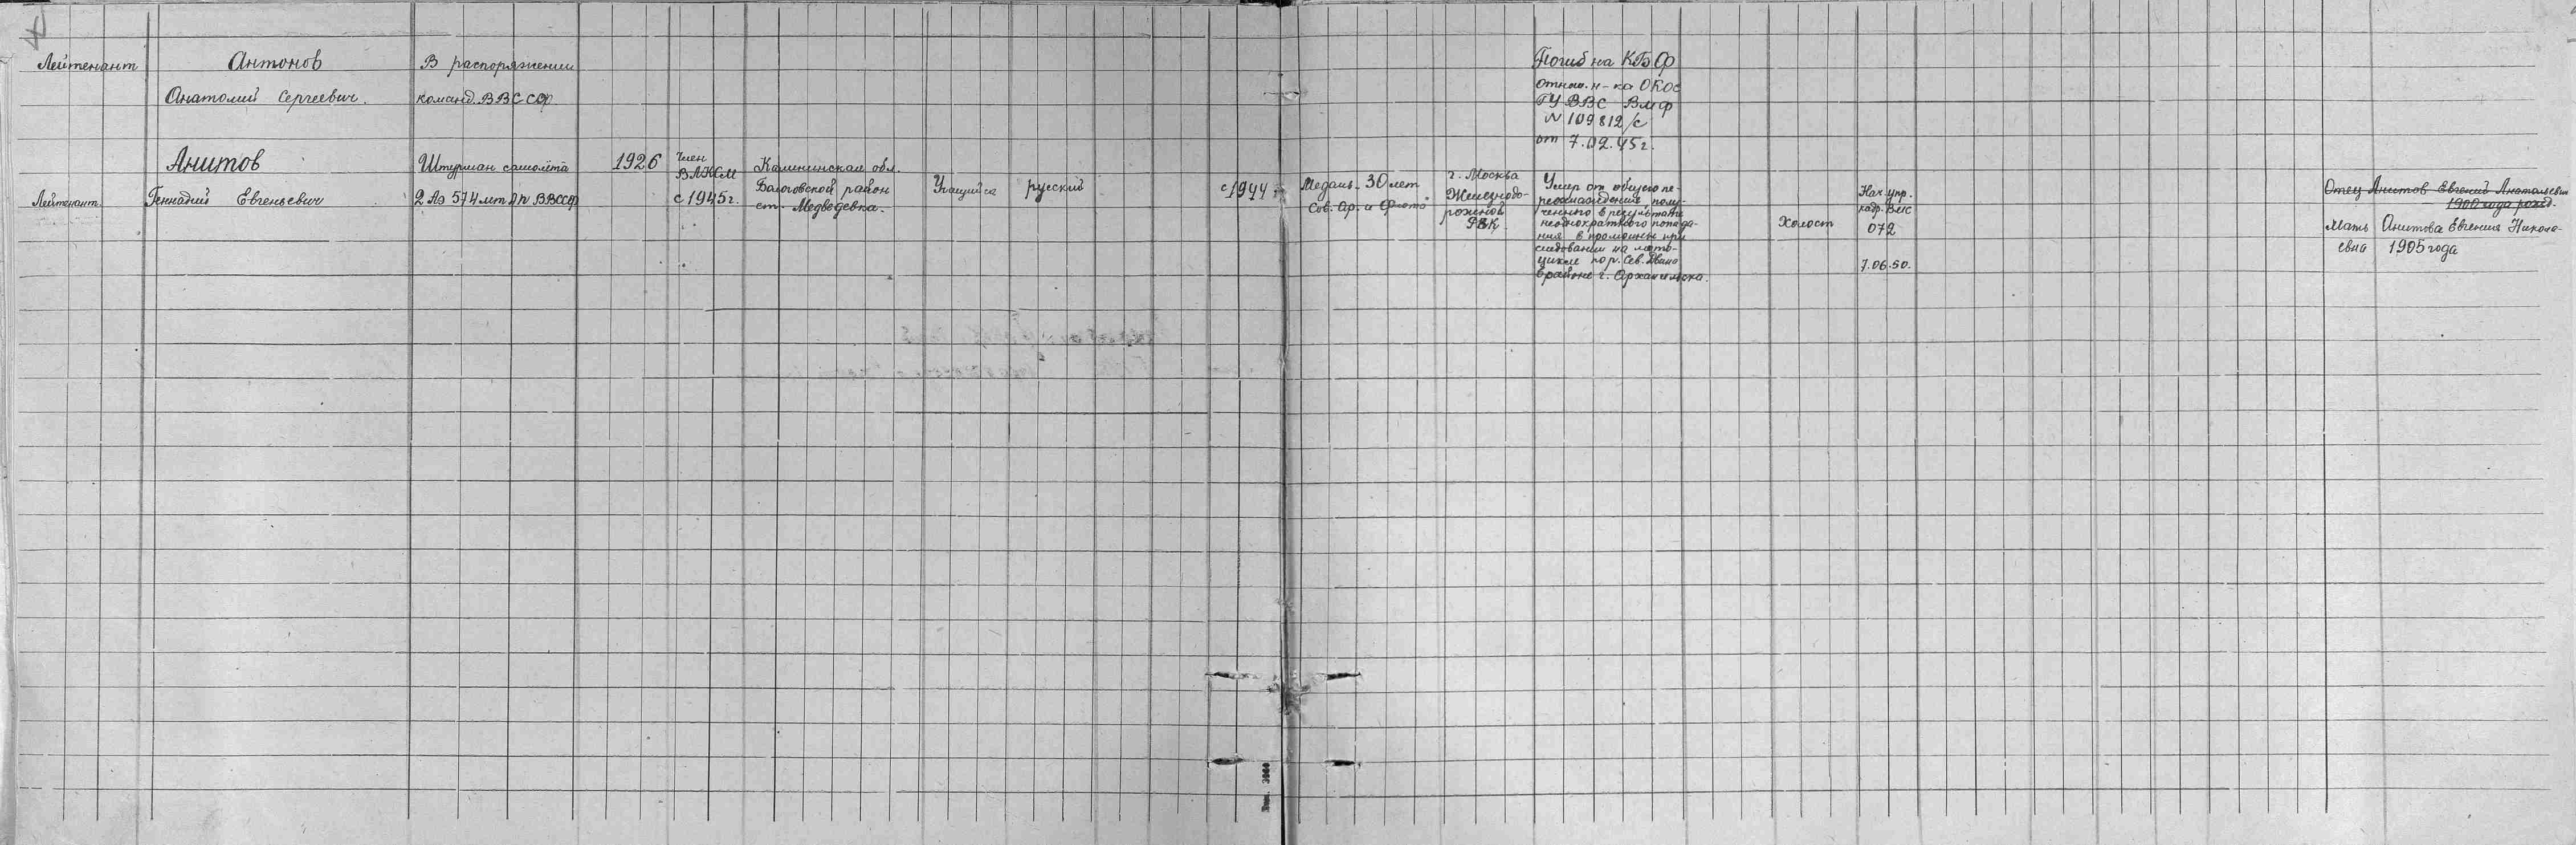 Лейтенант
Антонов
Анатолий Сергеевич.
В распоряжении
команд. ВВС СФ
Погиб на КБФ
Отнош. н-ка ОКОС
ГУ ВВС ВМФ
№ 109812/с
от 7.02.45г.
Лейтенант
Анитов
Геннадий Евгеньевич
Штурман самолёта
2 Аэ 574 мтАп ВВС СФ
1926
Член
ВЛКСМ
с 1945г.
Калининская обл.
Бологовской район
ст. Медведевка.
Учащийся
русский
с 1944г.
Медаль "30 лет
Сов. Ар. и Флота"
г. Москва
Железнодо-
рожной
РВК
Умер от общего пе-
реохлаждения, полу-
ченного в результате
неоднократного попада-
ния в промоины при
следовании на мото-
цикле по р. Сев. Двина
в районе г. Архангельска.
Холост
Нач. упр.
кадр. ВМС
072
7.06.50.
Отец Анитов Евгений Анатольевич
1900 года рожд.
Мать Анитова Евгения Никола-
евна 1905 года